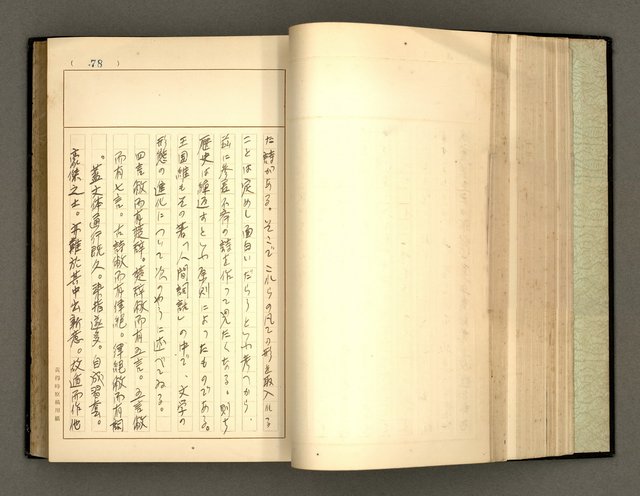 ( 78 )
た詩がある。そこでこれらの凡ての形を取入れる
ことは定めし面白いだらうといふ考へから、
前に参差不齊の詩を作って見たくなる。則ち
歴史は繰返すといふ原則によったものである。
王国維もその著「人間詞話」の中で、文学の
形態の進化について次のやうに述べてゐる。
四言敝而有楚辞。楚辞敝而有五言。五言敝
而有七言。古詩敝而有律絶。律絶敝而有詞
。蓋文体通行既久。染指遂多。自成習套。
豪傑之士。亦難於其中出新意。故遁而作他
黄得時原稿用紙